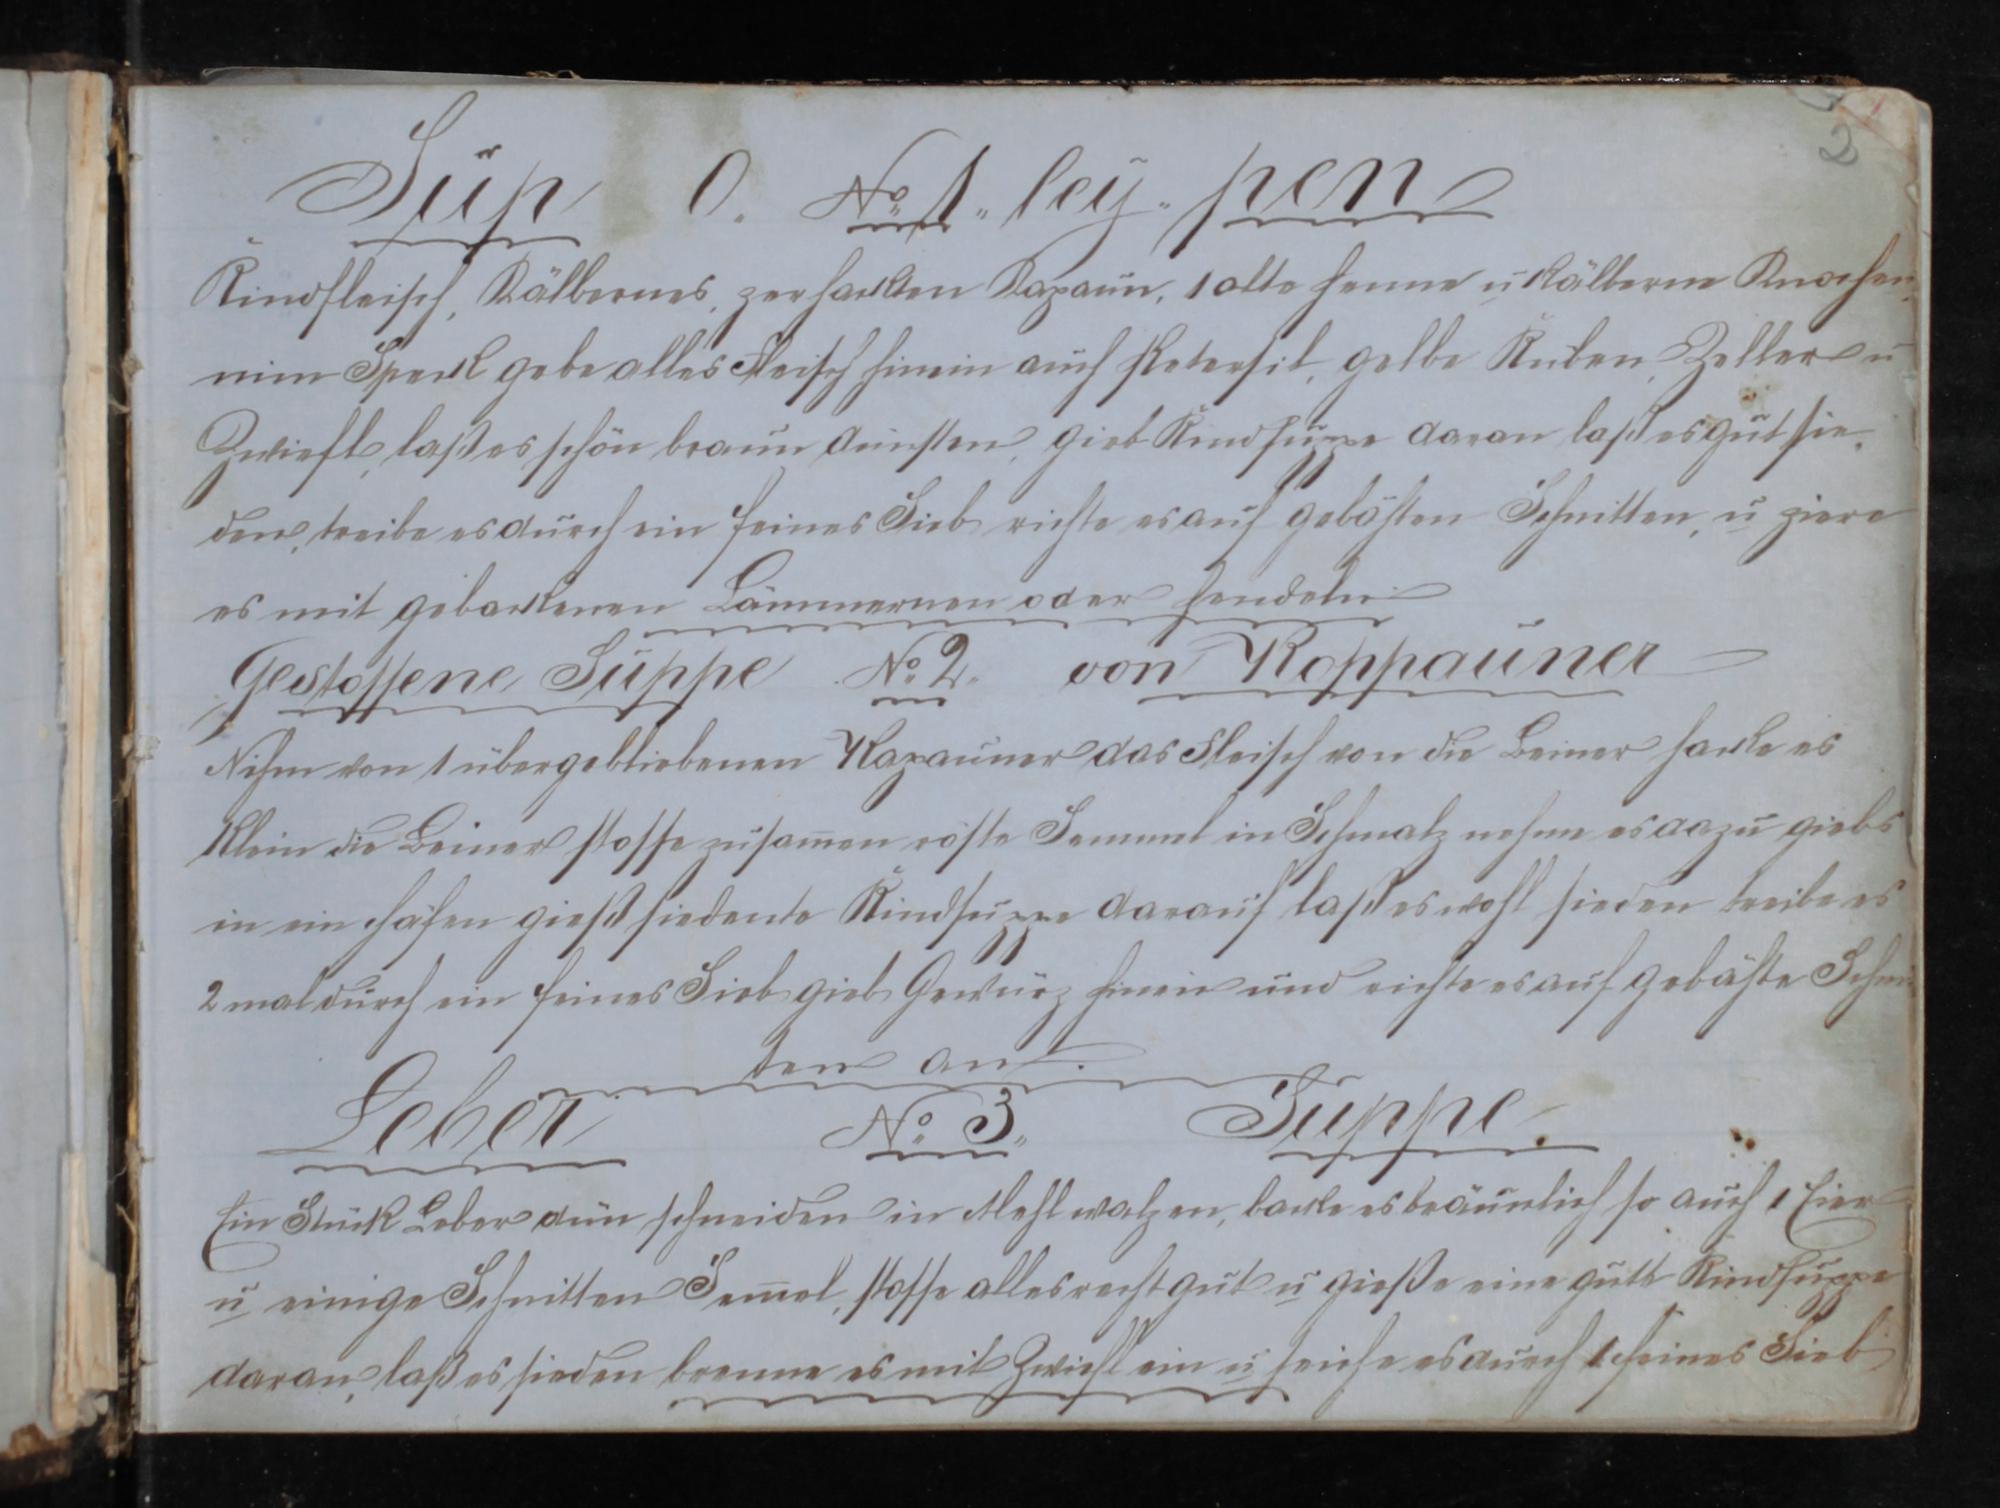 2
Süp O. No 1. ley. pen
Rindfleisch, Kälbernes, zerhackten Kapaun, 1 alte Henne u kälberne Knochen,
nim Speck gebe alles Fleisch hinein auch Petersil, gelbe Ruben, Zeller u
Zwiefl, laß es schön braun dünsten, gieb Rindsuppe daran laß es gut sie-
den, treibe es durch ein feines Sieb richte es auf gebähten Schnitten, u ziere
es mit gebackenen Lämmernen oder Hendeln
Gestossene Suppe No 2. von Koppauner
Nihm von 1 übergebliebenen Kapauner das Fleisch von die Beiner hacke es
klein die Beiner stosse zusamen röste Semmel in Schmalz nehme es dazu giebs
in ein Häfen gieß siedente Rindsuppe darauf laß es wohl sieden treibe es
2 mal durch ein feines Sieb gieb Gewürz hinein und richte es auf gebähte Schni
ten an.
Leber No 3. Suppe.
Ein Stück Leber dün schneiden in Mehl walzen, backe es bräunlich so auch 1 Eier
u einige Schnitten Semel, stosse alles recht gut u gieße eine gute Rindsuppe
daran, laß es sieden brenne es mit Zwiefl ein u seihe es durch 1 feines Sieb